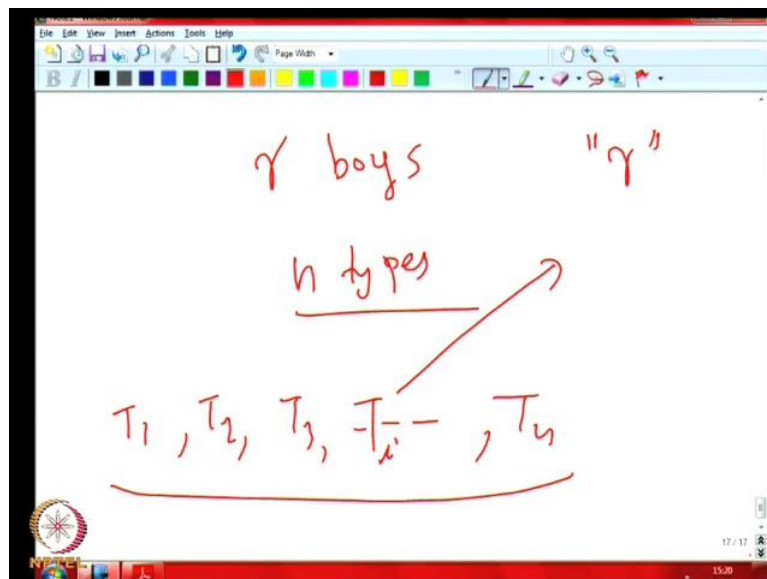 File Edit View Insert Actions Tools Help
Page Width
B I
r boys "r"
n types
T1, T2, T3, -Ti- -, Tn
17 / 17
NPTEL
15:20